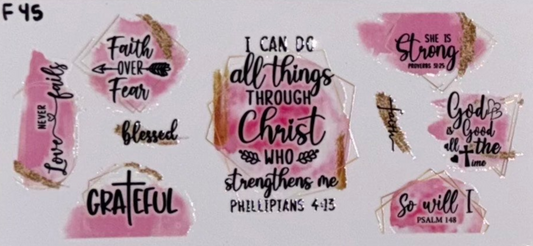 F 45
Faith
OVER
Fear
NEVER
Love fails
blessed
GRATEFUL
I CAN DO
all things
THROUGH
Christ
WHO
strengthens me
PHILLIPIANS 4:13
SHE IS
Strong
PROVERBS 31:25
God
is Good
all the
time
So will I
PSALM 148